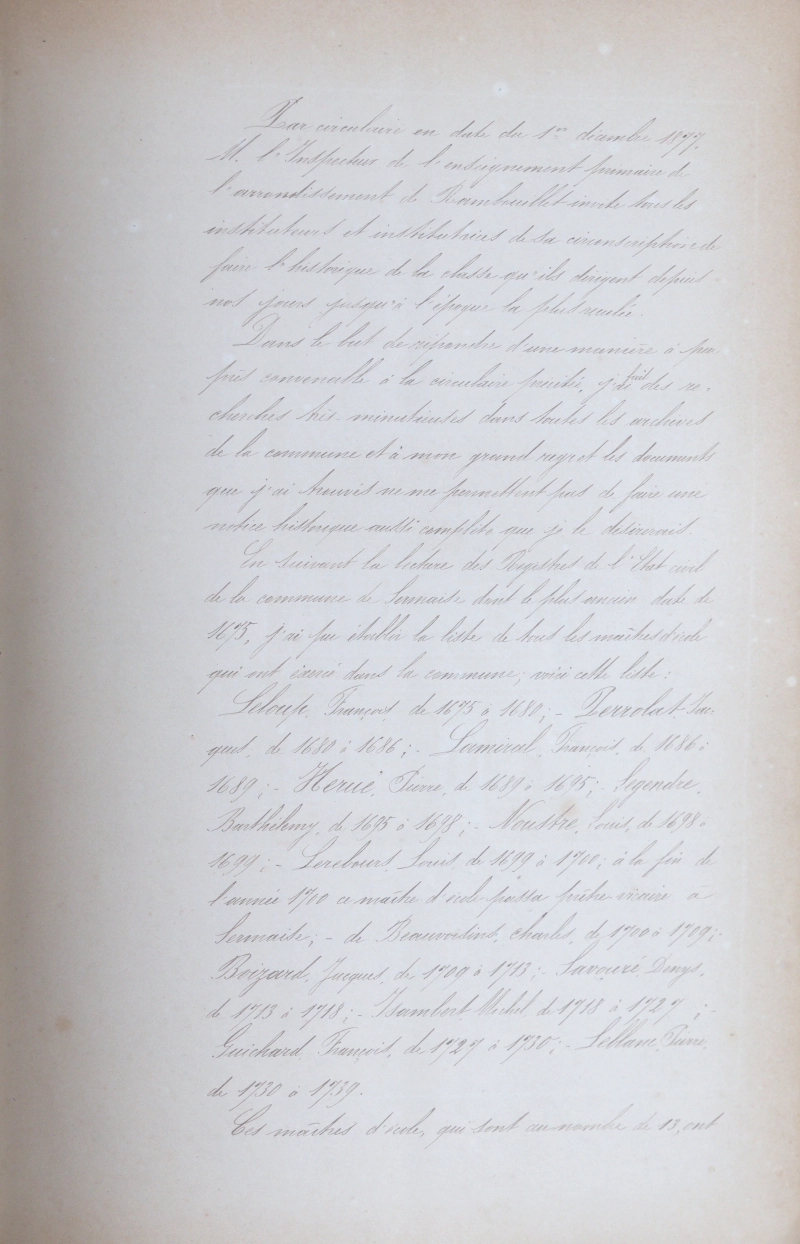 Par circulaire en date du 1er décembre 1877,
M. l'Inspecteur de l'enseignement primaire de
l'arrondissement de Rambouillet invite tous les
instituteurs et institutrices de sa circonscription de
faire l'historique de la classe qu'ils dirigent depuis
nos jours jusqu'à l'époque la plus reculée.
Dans le but de répondre d'une manière à peu
près convenable à la circulaire précitée, j'ai fait des re-
cherches très minutieuses dans toutes les archives
de la commune et à mon grand regret les documents
que j'ai trouvés ne me permettent pas de faire une
notice historique aussi complète que je le désirerais.
En suivant la lecture des Registres de l'Etat civil
de la commune de Sermaise dont le plus ancien date de
1675, j'ai pu établir la liste de tous les maîtres d'école
qui ont exercé dans la commune; voici cette liste:
Leloup, François, de 1675 à 1680; - Perrolat Jac-
ques, de 1680 à 1686; - Lamiral, François, de 1686 à
1689; - Hervé, Pierre, de 1689 à 1695; Legendre,
Barthélemy, de 1695 à 1698; - Noustre, Louis, de 1698 à
1699; - Lerebours, Louis, de 1699 à 1700; à la fin de
l'année 1700 ce maître d'école passa prêtre vicaire à
Sermaise; - de Beauvoisins, Charles, de 1700 à 1709;
Boizard, Jacques, de 1709 à 1713; - Savouré, Denys,
de 1713 à 1718; - Isambert Michel, de 1718 à 1727;
Guichard, François, de 1727 à 1730; - Leblanc, Pierre,
de 1730 à 1739.
Ces maîtres d'école, qui sont au nombre de 13, ont